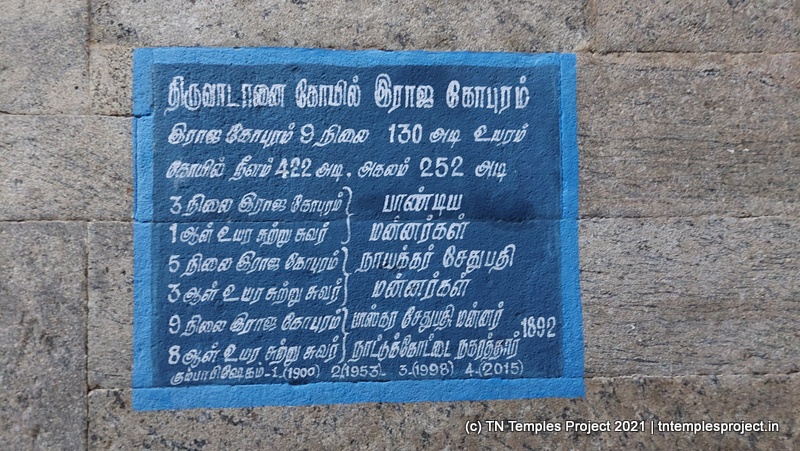 திருவாடானை கோயில் இராஜ கோபுரம்
இராஜ கோபுரம் 9 நிலை 130 அடி உயரம்
கோயில் நீளம் 422 அடி, அகலம் 252 அடி
3 நிலை இராஜ கோபுரம் } பாண்டிய
1 ஆள் உயர சுற்று சுவர் } மன்னர்கள்
5 நிலை இராஜ கோபுரம் } நாயக்கர் சேதுபதி
3 ஆள் உயர சுற்று சுவர் } மன்னர்கள்
9 நிலை இராஜ கோபுரம் } பாஸ்கர சேதுபதி மன்னர் 1892
8 ஆள் உயர சுற்று சுவர் } நாட்டுக்கோட்டை நகரத்தார்
கும்பாபிஷேகம்-1.(1900) 2(1953)- 3-(1998) 4-(2015)
(c) TN Temples Project 2021 | tntemplesproject.in